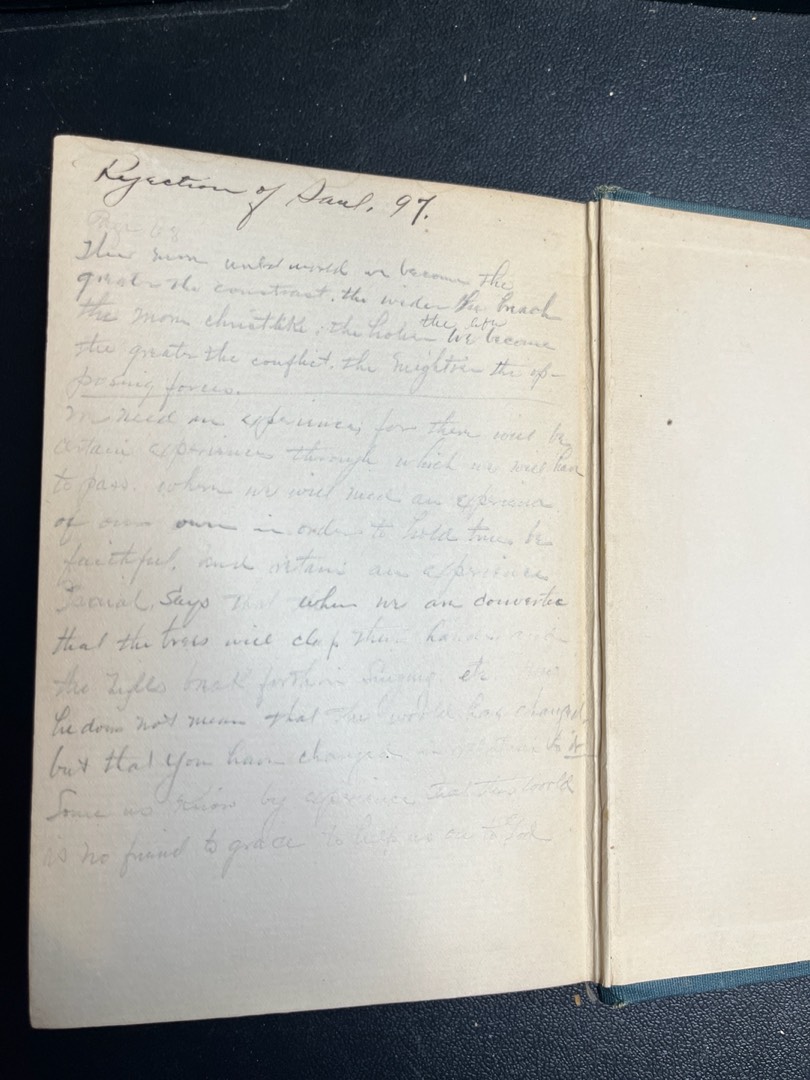 Rejection of Saul. 97.
Page 68
The more unlike world we become the
greater the contrast. the wider the breach
the more christlike; the holier the we become
the greater the conflict. the mightier the op-
posing forces.
We need an experience, for there will be
certain experiences through which we will have
to pass. where we will need an experience
of our own in order to hold true, be
faithful, and retain an experience
Isaiah, says that when we are converted
that the trees will clap their hands and
the hills break forth in singing. etc.
he does not mean that the world has changed,
but that you have changed in relation to it
Some us know by experience that this world
is no friend to grace to help us on to God